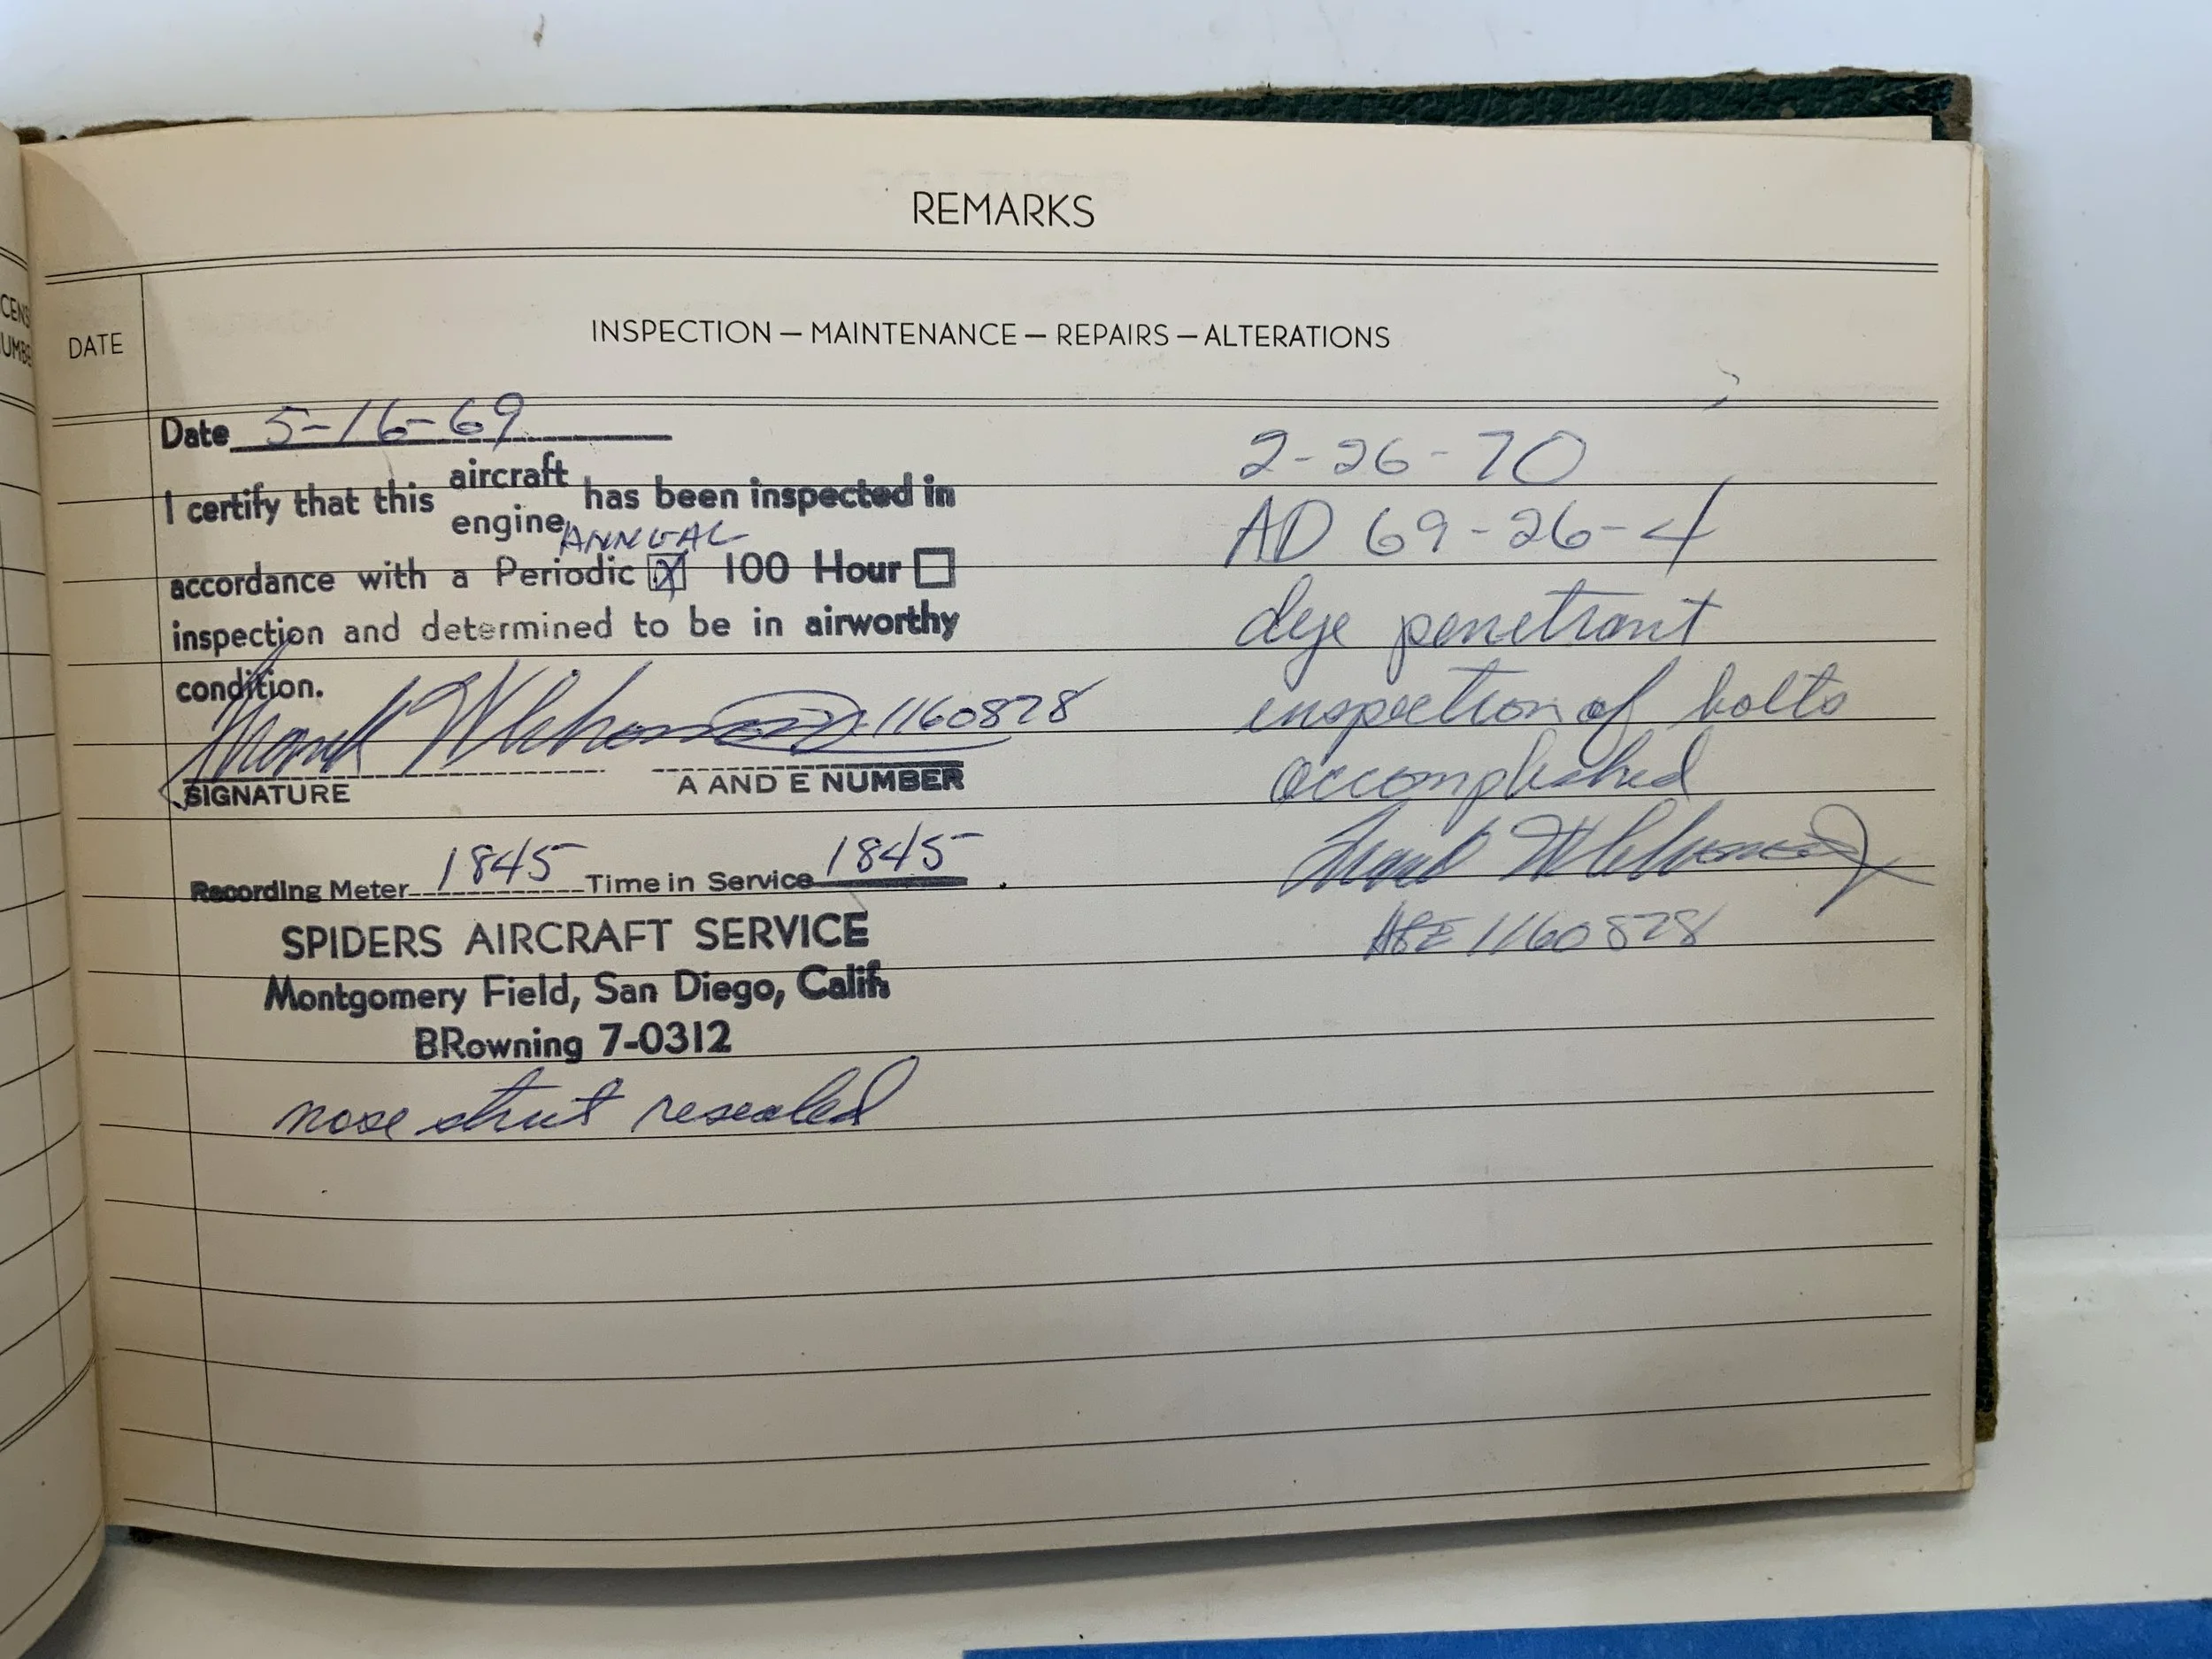 CENS
UMBE
REMARKS
DATE
INSPECTION — MAINTENANCE — REPAIRS — ALTERATIONS
Date 5-16-69
I certify that this aircraft engine has been inspected in
ANNUAL
accordance with a Periodic ☒ 100 Hour ☐
inspection and determined to be in airworthy
condition.
1160828
SIGNATURE A AND E NUMBER
Recording Meter 1845 Time in Service 1845
SPIDERS AIRCRAFT SERVICE
Montgomery Field, San Diego, Calif.
BRowning 7-0312
nose strut resealed
2-26-70
AD 69-26-4
dye penetrant
inspection of bolts
accomplished
A&E 1160828